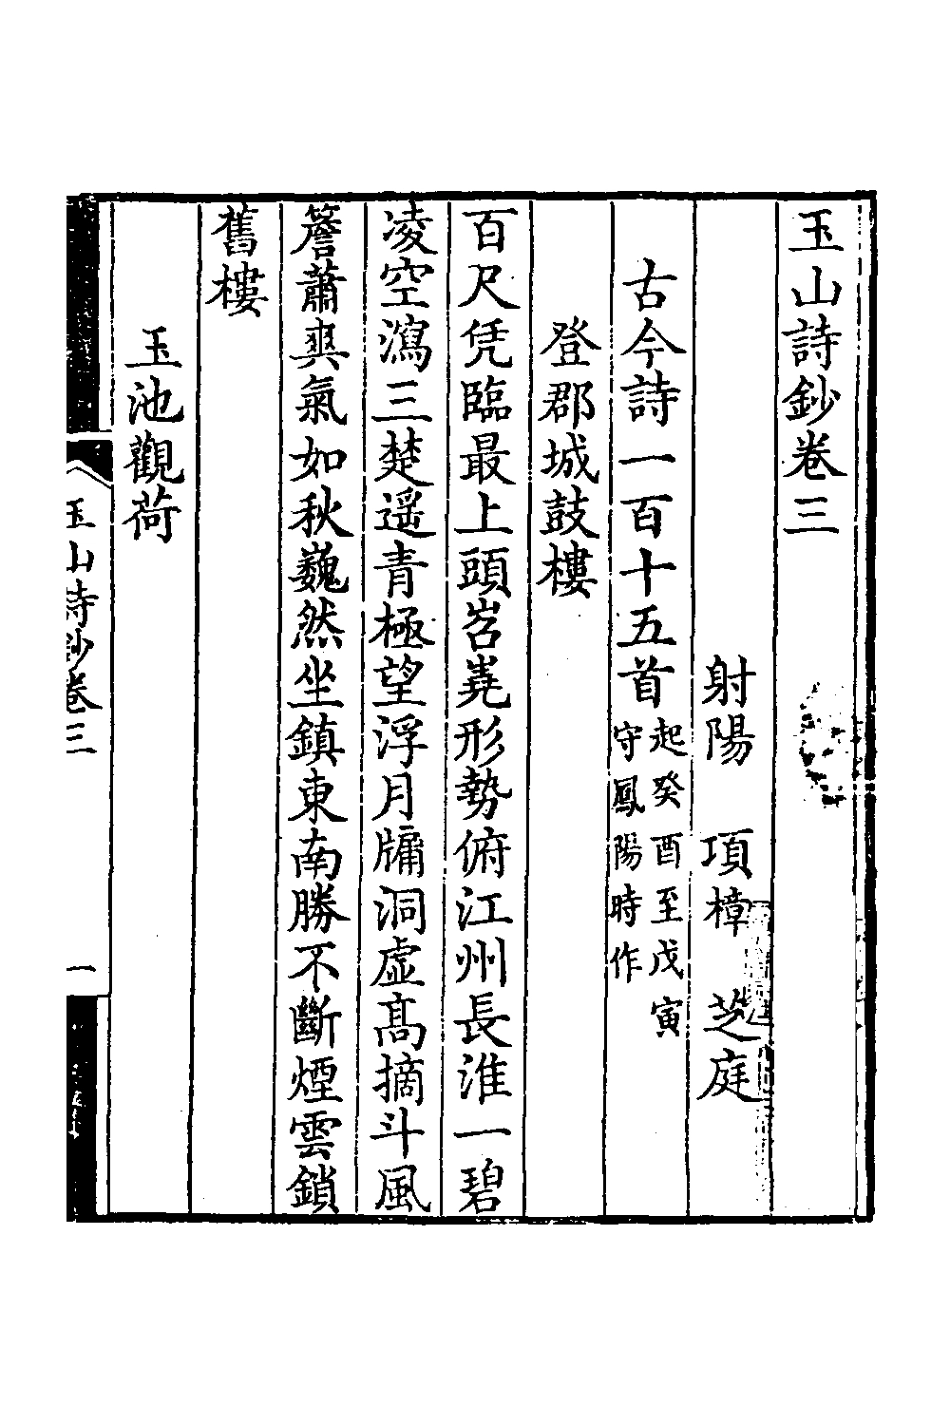 玉山詩鈔卷三
射陽　項樟　芝庭
古今詩一百十五首起癸酉至戊寅守鳳陽時作
登郡城鼓樓
百尺凭臨最上頭岧嶤形勢俯江州長淮一碧
凌空瀉三楚遥青極望浮月牗洞虚髙摘斗風
簷蕭爽氣如秋巍然坐鎮東南勝不斷煙雲鎖
舊樓
玉池觀荷
玉山詩鈔卷三
一